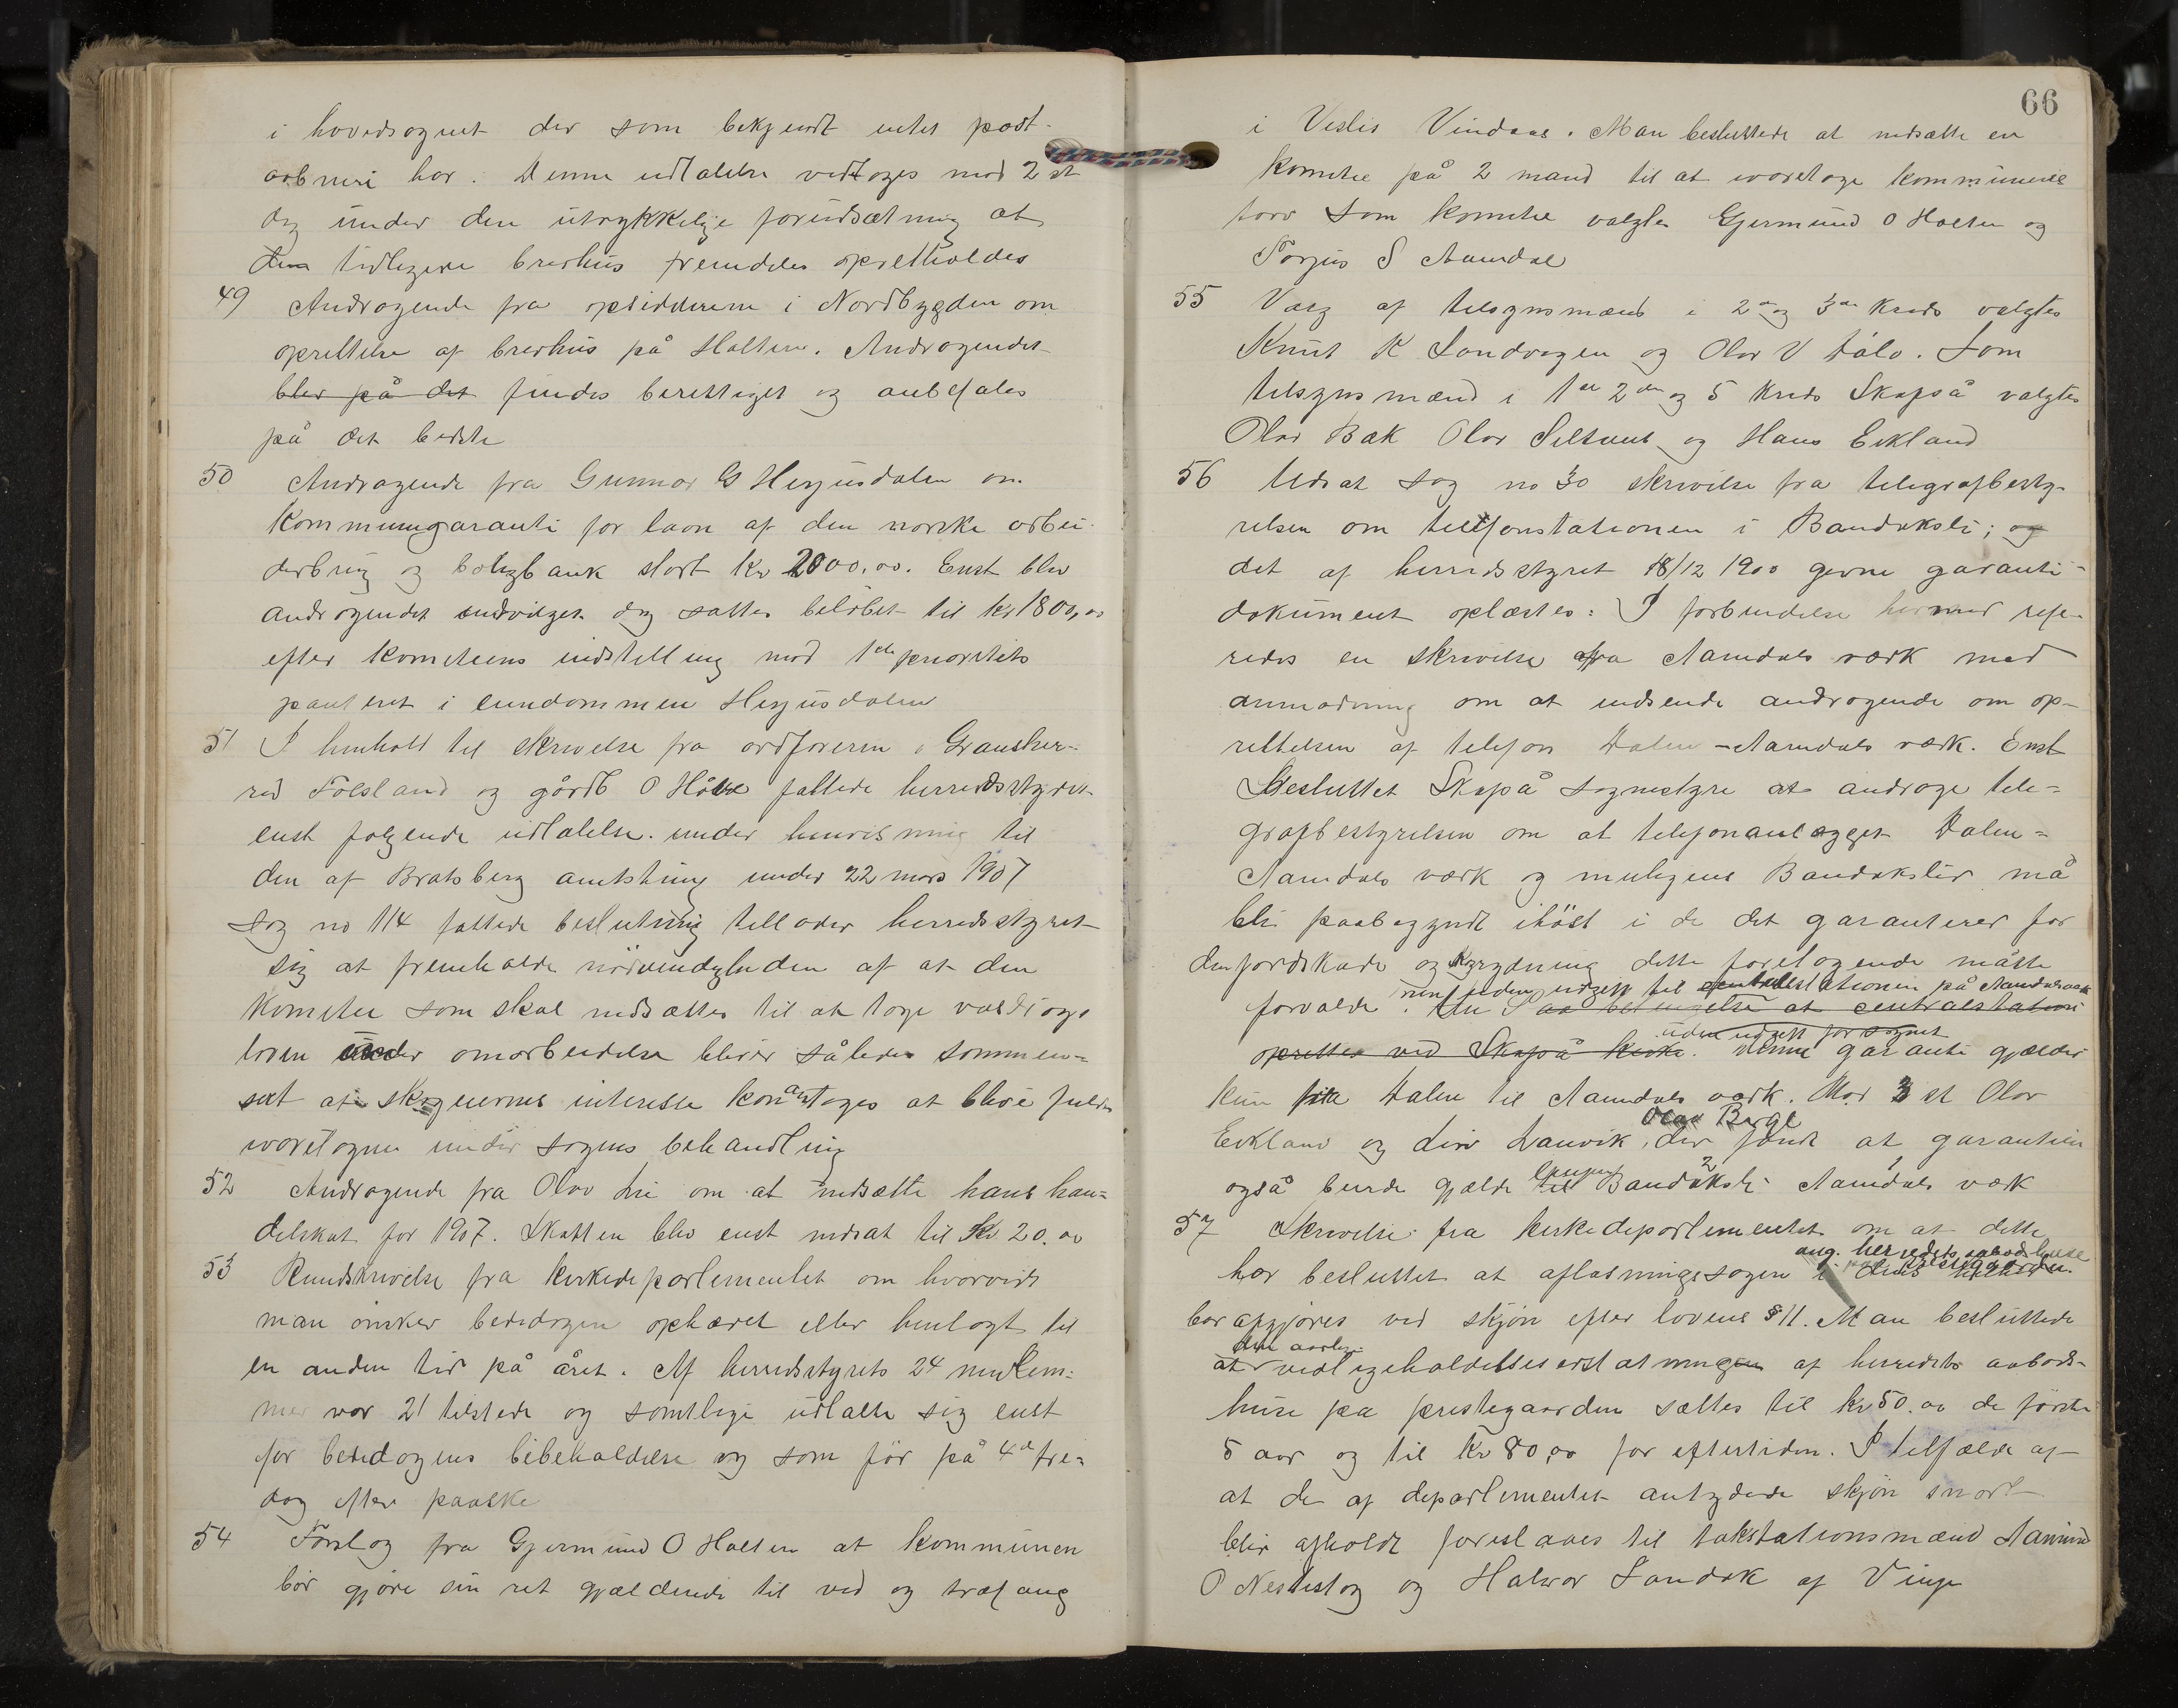 i hovedsognet der som bekjendt intet post-
aabneri har. Denne udtalelse vedtoges mod 2 st
dog under den utrykkelige forudsætning at
den tidligere brevhus fremdeles opretholdes
49 Andragende fra opsidderne i Nordbygden om
oprettelse af brevhus på Holtene. Andragendet
blev på det findes berettiget og anbefales
på det bedste
50 Andragende fra Gunnar G Herjusdalen om
Kommunegaranti for laan af den norske arbei-
derbrug og boligbank stort kr 2000,00. Enst blev
andragendet indvilget dog sattes beløbet til kr 1800,00
efter komiteens indstilling mod 1ste prioritets
panteret i eiendommen Herjusdalen
51 I henhold til skrivelse fra ordføreren i Gransher-
red Følsland og gårdb O Håtvæ fattede herredsstyret
enst følgende udtalelse. under henvisning til
den af Bratsberg amtsthing under 22 mars 1907
sag no 114 fattede beslutning tillader herredsstyret
sig at fremholde nødvendigheden af at den
komitee som skal nedsættes til at tage vasdrags
loven under omarbeidelse bliver således sammen-
sat at skogeiernes interesse kan antages at blive fuldt
varetagne under sagens behandling
52 Andragende fra Olav Lie om at nedsætte hans han-
delskat for 1907. Skatten blev enst nedsat til Kr 20.00
53 Rundskrivelse fra kirkedepartementet om hvorvidt
man ønsker bededagen ophævet eller henlagt til
en anden tid på året. Af herredsstyrets 24 medlem-
mer var 21 tilstede og samtlige udtalte sig enst
for bededagens bibeholdelse og som før på 4de fre-
dag efter paaske
54 Forslag fra Gjermund O Holten at kommunen
bør gjøre sin ret gjældende til ved og træfang
66
i Veslis Vindaas. Man besluttede at nedsætte en
komitee på 2 mand til at varetage kommunens
tarv som komitee valgtes Gjermund O Holten og
Torjus S Aamdal
55 Valg af tilsynsmænd i 2den og 3die Kreds valgtes
Knut K Landvogen og Olav V Dåle. Som
tilsynsmænd i 1ste 2den og 5 kreds Skafså valgtes
Olav Bæk Olav Siltvet og Hans Eikland
56 Udsat sag no 30 skrivelse fra telegrafbesty-
relsen om telefonstationen i Bandaksli; og
det af herredsstyret 18/12 1900 givne garanti-
dokument oplæstes: I forbindelse hermed refe-
redes en skrivelse fra Aamdals værk med
anmodning om at indsende andragende om op-
rettelsen af telefon Dalen – Aamdals værk. Enst
Besluttet Skafså sognestyre at andrage tele-
grafbestyrelsen om at telefonanlægget Dalen-
Aamdals værk og muligens Bandakslid må
bli paabegyndt ihøst i de det garanterer for
den jordskade og rydning dette foretagende måtte
men uden udgift til centralstationen på Aamdals værk
forvolde. at centralstation
uden udgift for sognet
oprettes ved Skafså kirke. Denne garanti gjælder
kun fra Dalen til Aamdals værk. Mod 3 st Olav
Olav Berge
Eikland og Liv Lauvik, der fandt at garantien
også burde gjælde til Bandaksli Aamdals værk
57 Skrivelse fra kirkedepartementet om at dette
ang. herredets aabodshuse
har besluttet at afløsningssagen i
bør afgjøres ved skjøn efter lovens § 11. Man besluttede
den aarlige
at vedligeholdelseserstatningen af herredets aabods-
huse på prestegaarden sættes til kr 50.00 de første
5 aar og til kr 80,00 for eftertiden. I tilfælde af
at de af departementet antydede skjøn snart
blir afholdt foreslaaes til takstationsmænd Aanund
O Nestestog og Halvor Sandok af Vinje